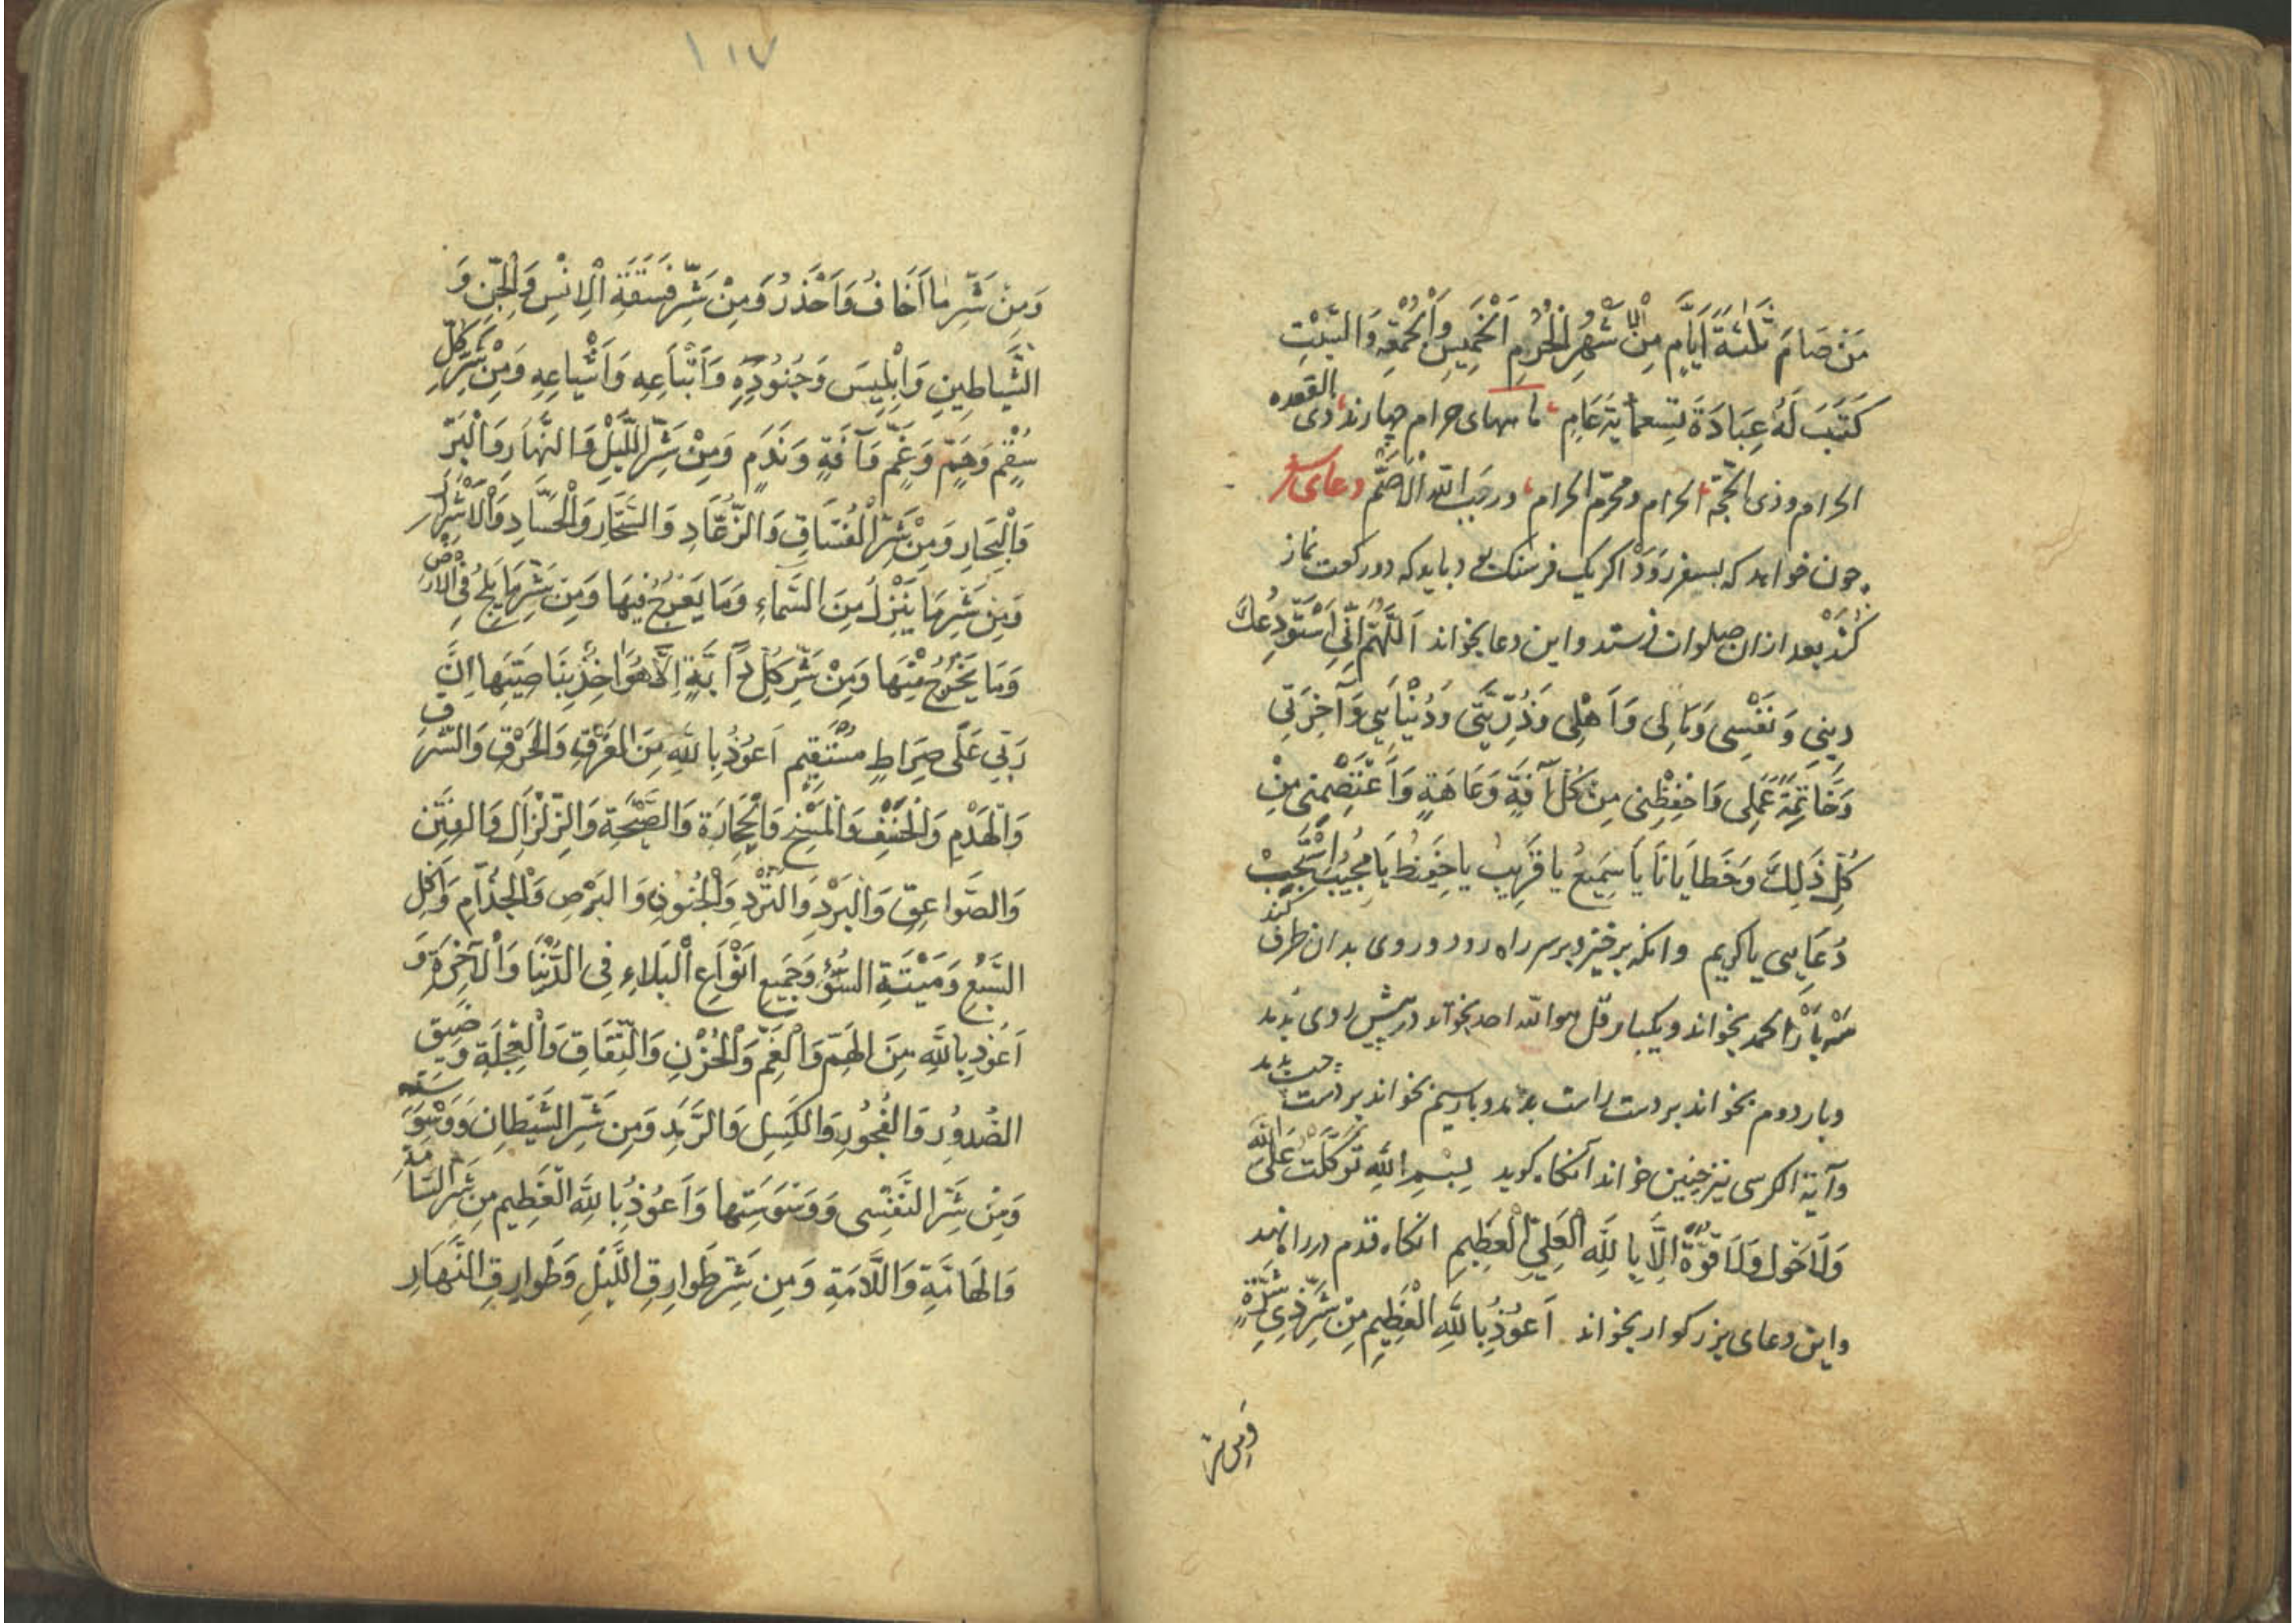 مَنْ صَامَ ثَلٰثَةَ اَيَّامٍ مِنْ الْاَشْهُرِ الْحُرُمِ اَلْخَمِيسِ وَالْجُمْعَةِ وَالسَّبْتِ
كَتَبَ لَهُ عِبَادَةَ تِسعمايَةَ عَامٍ ماههای حرام چهارند ذی القعده
الحرام وذی الحجّة الحرام ومحرّم الحرام ورجَب اللّه الاَصَمّ دعای سفر
چون خواهد که بسفر رَوَدْ اکر یک فرسنک بود باید که دو رکعت نماز
کُنَدْ بعد ازان صلوات فرستد واین دعا بخواند اَللَّهُمَّ اِنِّي اَسْتَوْدِعُكَ
دِينِي وَنَفْسِي وَمَالِى وَاَهْلِى وَذُرِّيَّتِي وَدُنْيَايَ وَآخِرَتِي
وَخَاتِمَةَ عَمَلِى وَاحْفِظْنِى مِنْ كُلِّ آفَةٍ وَعَاهَةٍ وَاَعْتَصْمِنِى مِنْ
كُلِّ ذَلِكَ وَخَطَايَانَا يَا سَمِيعُ يا قَرِيبُ يا حَفِيظُ يَا مُجِيبُ اِسْتَجِبْ
دُعَايِى يا كريم وانکه برخیزد بر سر راه رود و روی بدان طرف کند
سَه بَارْ الحمد بخواند ویکبار قل هو اللّه احد بخواند در پیش روی بَدمد
وبار دوم بخواند بر دست راست بدمد وبار سیم بخواند بر دست چپ بدمد
وآیة الکرسی نیز چنین خواند آنکاه کوید بِسْمِ اللّهِ تَوَكَّلْتُ عَلَى اللّه
وَلَا حَوْلَ وَلَا قُوَّةَ اِلَّا بِاللَّهِ الْعَلِيِّ الْعَظِيمِ انکاه قدم در راه نهد
واین دعای بزرکوار بخواند اَعُوذُ بِاللَّهِ الْعَظِيمِ مِنْ شَرِّ ذِي
وَمِن شر
١١٧
وَمِنْ شَرِّ مَا اَخَافُ وَاَحْذَرُ وَمِنْ شَرِّ فَسَقَةِ الْاِنْسِ وَالْجِنِّ وَ
الشَّيَاطِينِ وَاِبْلِيسَ وَجُنُودِهِ وَاَتْبَاعِهِ وَاَشْيَاعِهِ وَمِنْ شَرِّ كُلِّ
سُقْمٍ وَهَمٍّ وَغَمٍّ وَآفَةٍ وَنَدَمٍ وَمِنْ شَرِّ اللَّيْلِ وَالنَّهَارِ وَالْبَرِّ
وَالْبِحَارِ وَمِنْ شَرِّ الْفُسَّاقِ وَالزُّعَّادِ وَالسَّحَّارِ وَالْحُسَّادِ وَالْاَشْرَارِ
وَمِنْ شَرِّ مَا يَنْزِلُ مِنَ السَّمَاءِ وَمَا يَعْرُجُ فِيهَا وَمِنْ شَرِّ مَا يَلِجُ فِي الْاَرْضِ
وَمَا يَخْرُجُ مِنْهَا وَمِنْ شَرِّ كُلِّ دَآبَّةٍ اِلَّا هُوَ اَخِذٌ بِنَاصِيَتِهَا اِنَّ
رَبِّي عَلَى صِرَاطٍ مُسْتَقِيمٍ اَعُوذُ بِاللَّهِ مِنَ الْغَرَقِ وَالْحَرْقِ وَالسَّرَقِ
وَالْهَدْمِ وَالْخَسْفِ وَالْمَسْخِ وَالْحِجَارَةِ وَالصَّيْحَةِ وَالزِّلْزَالِ وَالْفِتَنِ
وَالصَّوَاعِقِ وَالْبَرْدِ وَالْجُنُونِ وَالْبَرَصِ وَالْجُذَامِ وَاَكْلِ
السَّبُعِ وَمَيْتَةِ السُّوءِ وَجَمِيعِ اَنْوَاعِ الْبَلَاءِ فِى الدُّنْيَا وَالْآخِرَةِ وَ
اَعُوذُ بِاللَّهِ مِنَ الْهَمِّ وَالْغَمِّ وَالْحُزْنِ وَالنِّفَاقِ وَالْعِجْلَةِ وَضِيقِ
الصُّدُورِ وَالْفُجُورِ وَالْكَسِلِ وَمِنْ شَرِّ الشَّيْطَانِ وَوَسْوَسَتِهِ
وَمِنْ شَرِّ النَّفْسِى وَوَسْوَسَتِهَا وَاَعُوذُ بِاللَّهِ الْعَظِيمِ مِنْ شَرِّ السَّامَّةِ
وَالْهَامَّةِ وَاللَّامَّةِ وَمِنْ شَرِّ طَوَارِقِ اللَّيْلِ وَطَوَارِقِ النَّهَارِ